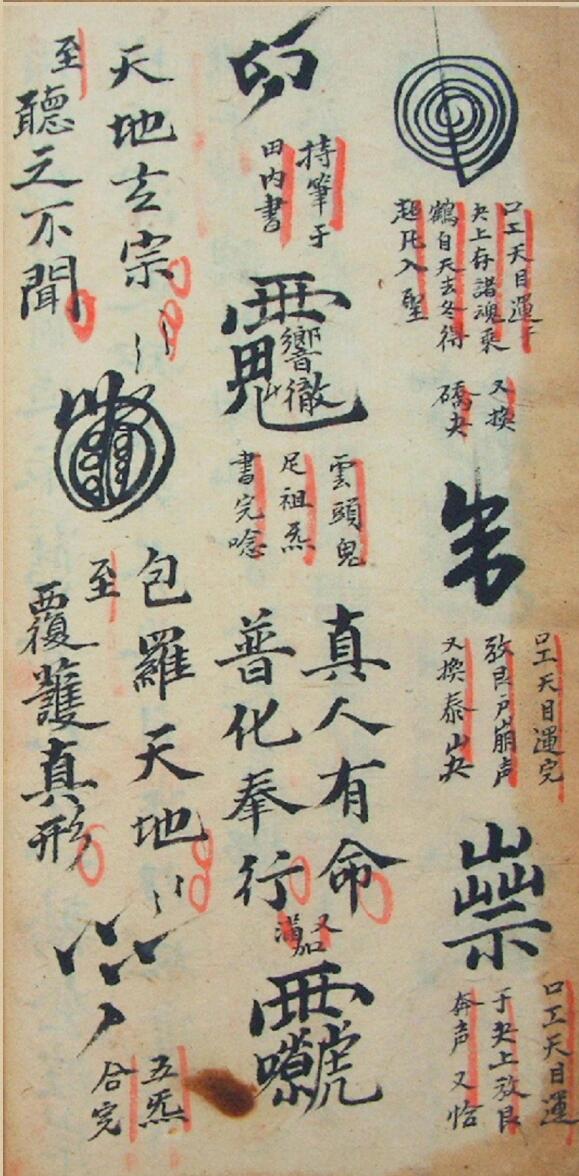 口工天目運于
夬上存諸魂乘
鶴自天玄冬得
超凡入聖
又換
礄夬
口工天目運完
放艮戸崩声
又換泰山夬
口工天目運
于夬上放艮
奔声 又恰
卯
持筆于
田內書
響徹
雲頭鬼
足祖炁
書完唸
真人有命
普化奉行
又加
滿
天地玄宗
至
聽之不聞
包羅天地
至
覆護真形
五炁
合完